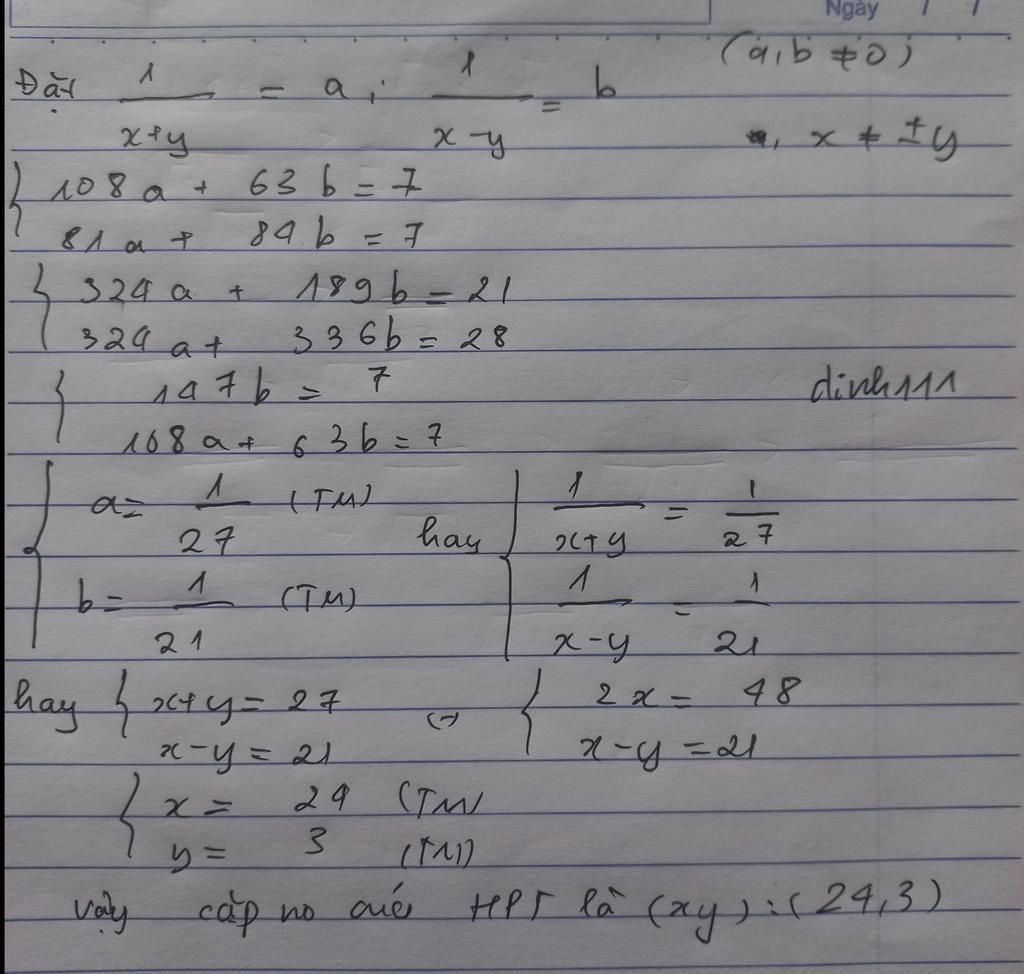 Ngày / /
Đặt 1/(x+y) = a; 1/(x-y) = b (a,b ≠ 0)
, x ≠ ±y
{ 108a + 63b = 7
81a + 84b = 7
{ 324a + 189b = 21
324a + 336b = 28
{ 147b = 7
108a + 63b = 7
dinh111
{ a = 1/27 (TM) hay { 1/(x+y) = 1/27
b = 1/21 (TM) 1/(x-y) = 1/21
hay { x+y = 27 (-) { 2x = 48
x-y = 21 x-y = 21
{ x = 24 (TM)
y = 3 (TM)
vậy cặp no HPT là (xy):(24,3)